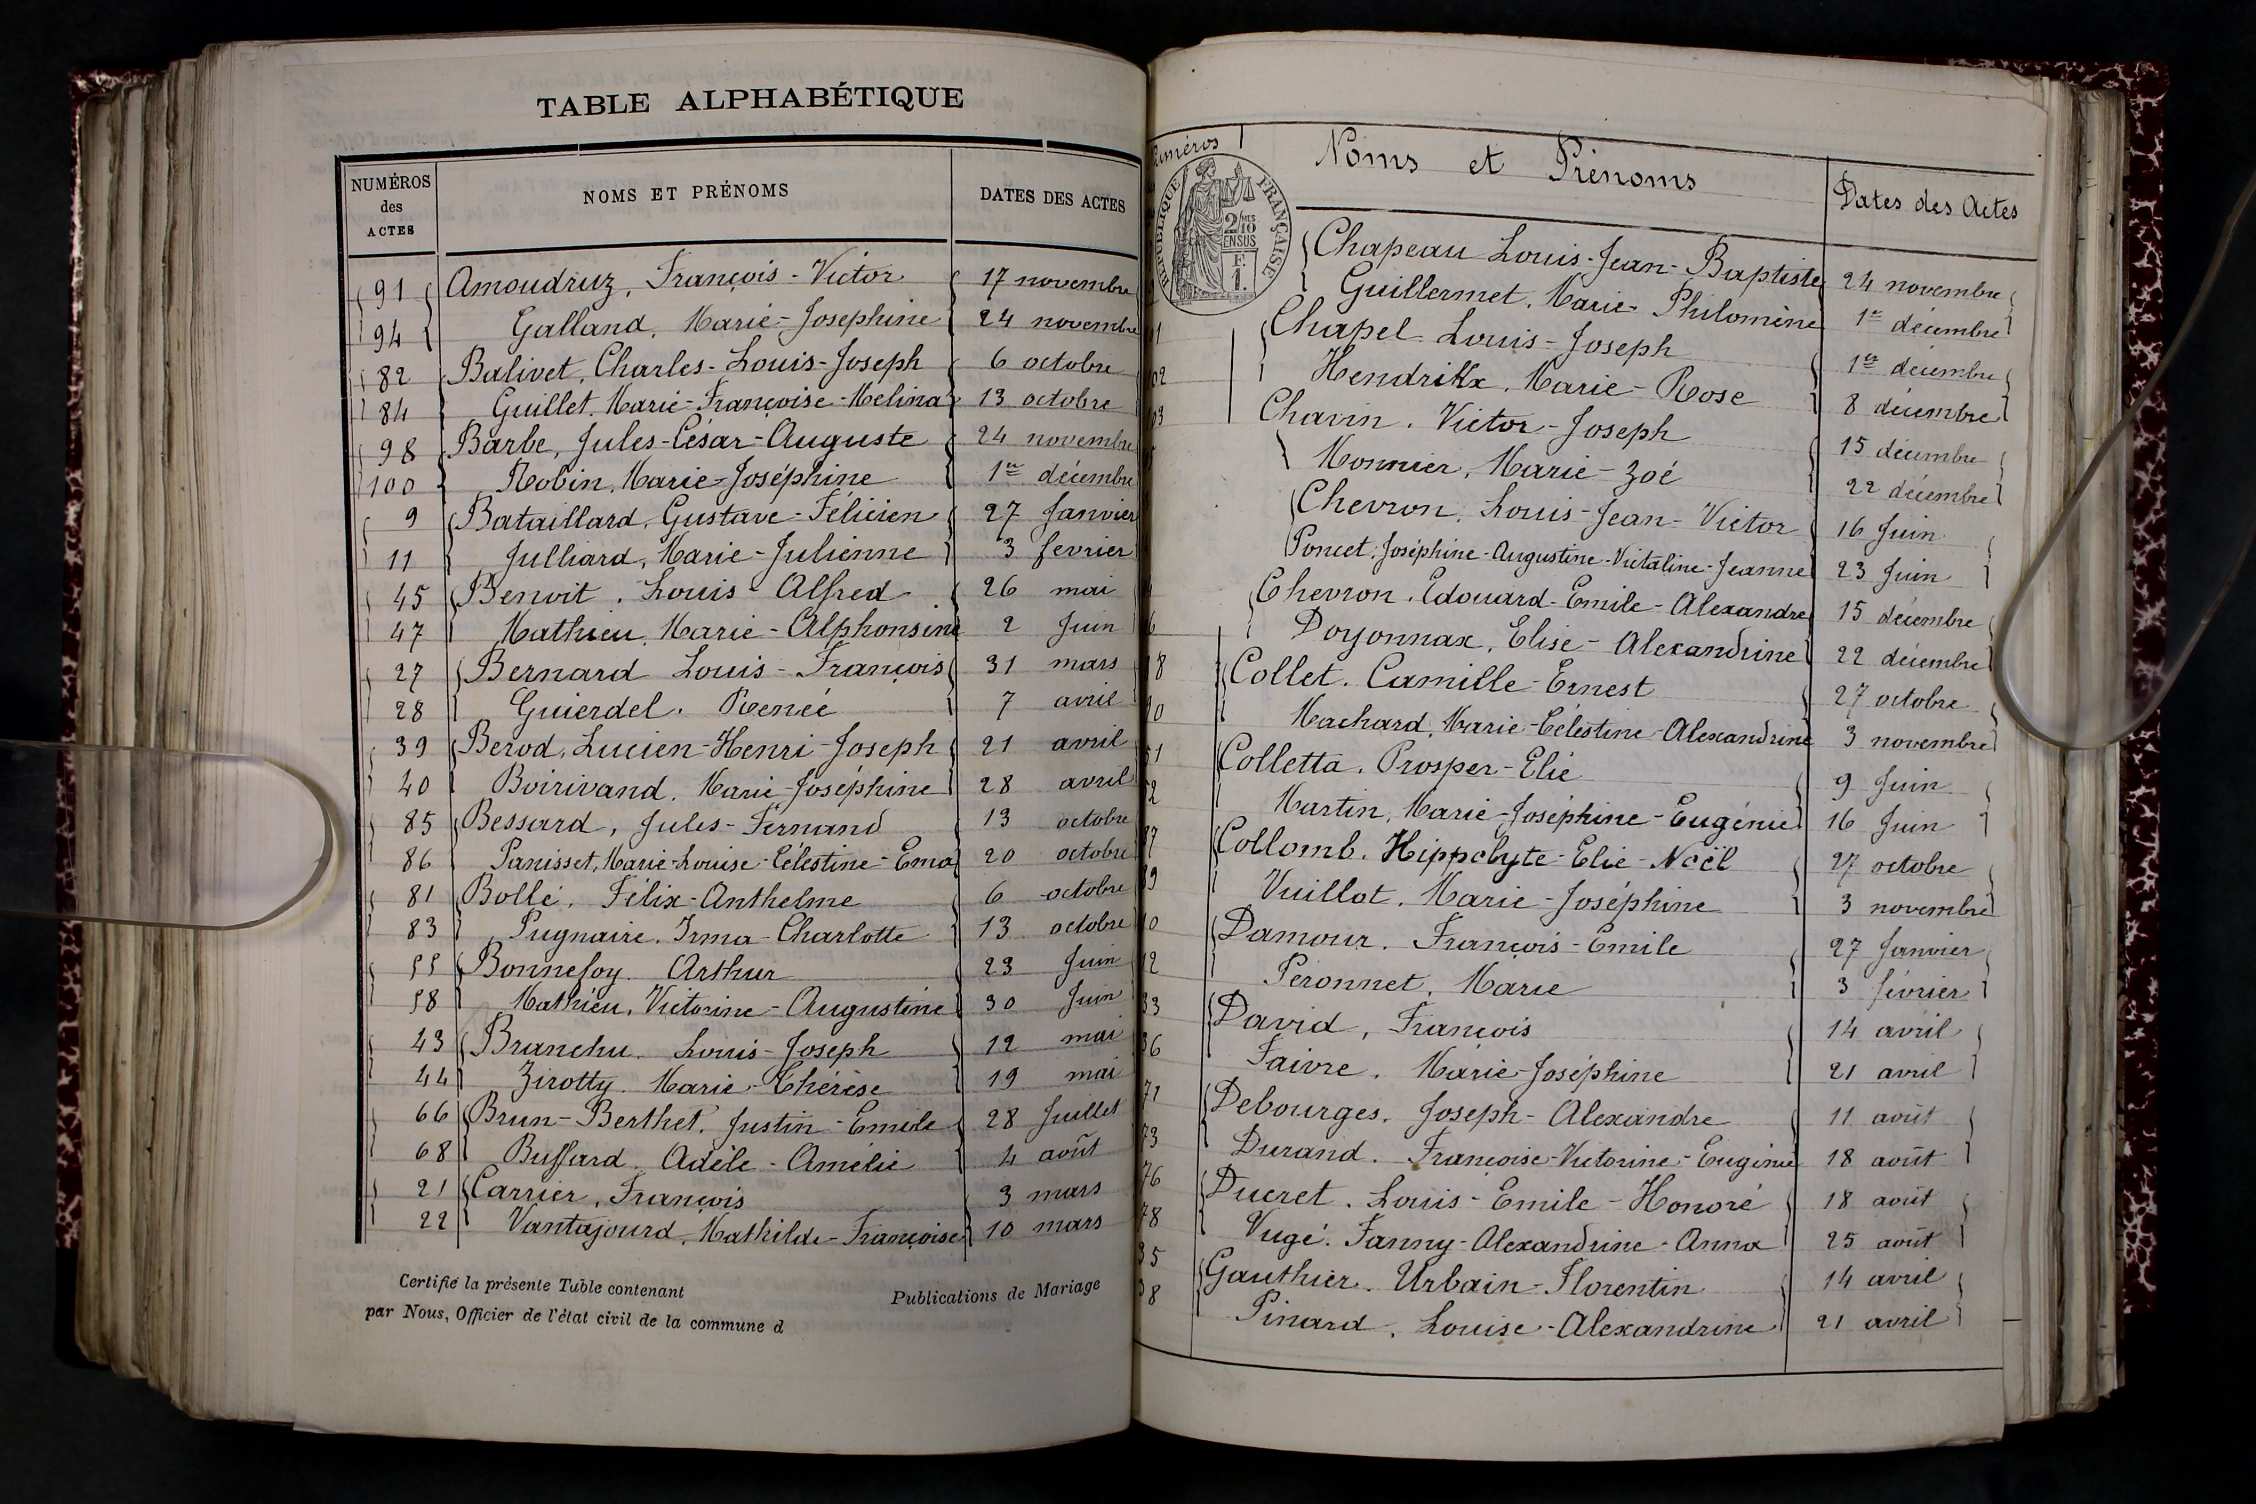 TABLE ALPHABÉTIQUE
NUMÉROS des ACTES NOMS ET PRÉNOMS DATES DES ACTES
91 Amoudruz, François-Victor 17 novembre
94 Galland, Marie-Josephine 24 novembre
82 Balivet, Charles-Louis-Joseph 6 octobre
84 Guillet, Marie-Françoise-Melina 13 octobre
98 Barbe, Jules-César-Auguste 24 novembre
100 Robin, Marie-Joséphine 1er décembre
9 Bataillard, Gustave-Félicien 27 Janvier
11 Julliard, Marie-Julienne 3 fevrier
45 Benoit, Louis Alfred 26 mai
47 Mathieu, Marie-Alphonsine 2 Juin
27 Bernard Louis-François 31 mars
28 Guierdel. Renée 7 avril
39 Berod, Lucien-Henri-Joseph 21 avril
40 Boirivand. Marie-Joséphine 28 avril
85 Bessard, Jules-Fernand 13 octobre
86 Panisset, Marie-Louise-Célestine-Ema 20 octobre
81 Bollé, Félix-Anthelme 6 octobre
83 Pugnaire. Irma-Charlotte 13 octobre
55 Bonnefoy Arthur 23 Juin
58 Mathieu, Victorine-Augustine 30 Juin
43 Branchu. Louis-Joseph 12 mai
44 Zirotty. Marie-Thérèse 19 mai
66 Brun-Berthet. Justin-Emile 28 Juillet
68 Buffard. Adèle-Amélie 4 août
21 Carrier, François 3 mars
22 Vantajourd, Mathilde-Françoise 10 mars
Certifié la présente Table contenant Publications de Mariage
par Nous, Officier de l'état civil de la commune d
Numéros Noms et Prénoms Dates des Actes
RÉPUBLIQUE FRANÇAISE
2/10
EN SUS
F.
1.
Chapeau Louis-Jean-Baptiste 24 novembre
Guillermet. Marie-Philomène 1er décembre
Chapel Louis-Joseph 1er décembre
02 Hendrikx. Marie-Rose 8 décembre
03 Chavin. Victor-Joseph 15 décembre
Monnier, Marie-Zoé 22 décembre
Chevron. Louis-Jean-Victor 16 Juin
Poncet. Joséphine-Augustine-Victaline-Jeanne 23 Juin
Chevron. Edouard-Emile-Alexandre 15 décembre
6 Doyonnax, Elise-Alexandrine 22 décembre
8 Collet. Camille-Ernest 27 octobre
0 Machard, Marie-Célestine-Alexandrine 3 novembre
51 Colletta. Prosper-Elie 9 Juin
2 Martin, Marie-Joséphine-Eugénie 16 Juin
87 Collomb. Hippolyte-Elie-Noël 27 octobre
89 Vuillot. Marie-Joséphine 3 novembre
10 Damour. François-Emile 27 Janvier
12 Péronnet, Marie 3 février
33 David, François 14 avril
36 Faivre. Marie-Joséphine 21 avril
71 Debourges. Joseph-Alexandre 11 août
73 Durand. Françoise-Victorine-Eugénie 18 août
76 Ducret. Louis-Emile-Honoré 18 août
78 Vugé. Fanny-Alexandrine-Anna 25 août
35 Gauthier. Urbain-Florentin 14 avril
38 Pinard. Louise-Alexandrine 21 avril